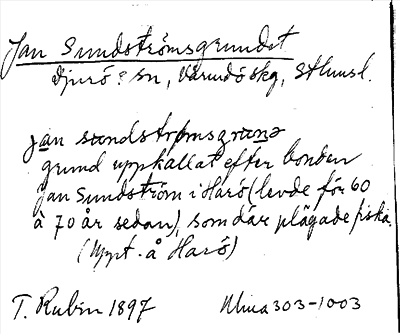 Jan Sundströmsgrundet
Djurö sn, Värmdö skg, Sthmsl.
jan sundstrømsgrunə
grund uppkallat efter bonden
Jan Sundström i Harö (levde för 60
à 70 år sedan), som där plägade fiska.
(Uppt. å Harö)
T. Rubin 1897
303-1003